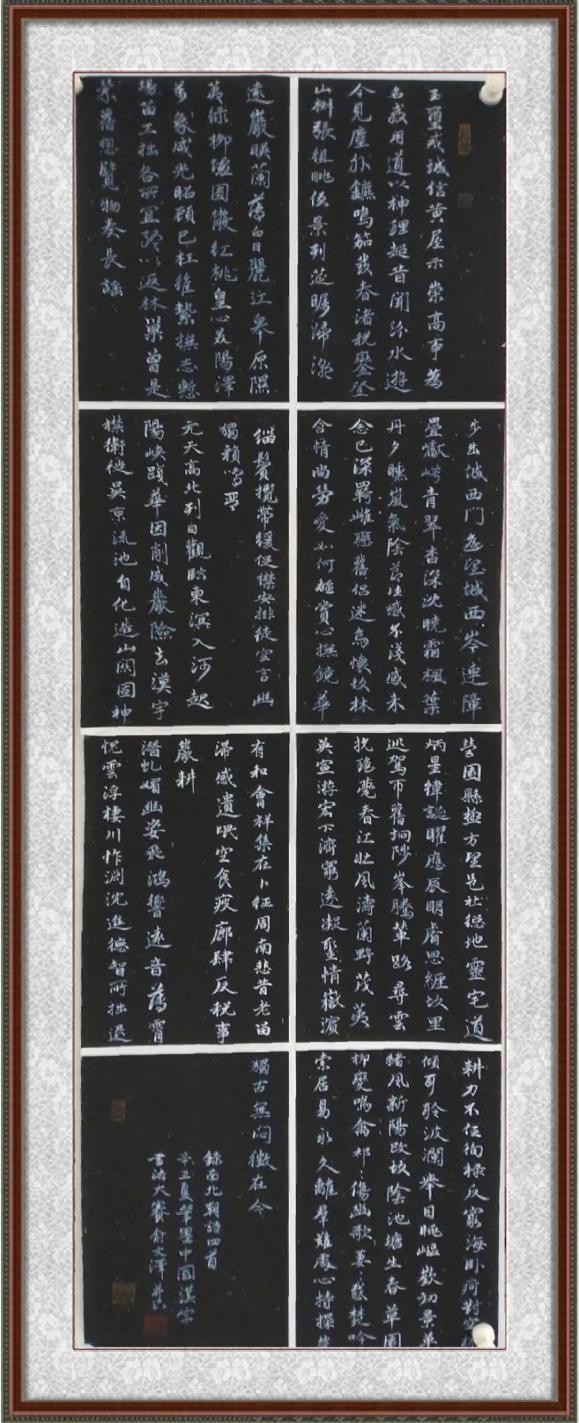 玉璽戒誠信黄屋示崇高事為
名教用道以神理超昔聞汾水遊
今見塵外鑣鳴笳發春渚税鑾登
山椒張組眺倒景列筵矚歸潮
遠巖映蘭薄白日麗江皋原隰
荑绿柳墟囿散红桃皇心美陽澤
萬象咸光昭顧己枉維縶撫志慙
場苗工拙各所宜終以返林巢曾是
縈舊想覽物奏長謠
步出城西門遥望城西岑連障
疊巘崿青翠杳深沈曉霜楓葉
丹夕曛嵐氣陰節往慼不淺感来
念已深羈雌戀舊侣迷鳥懷故林
含情尚勞愛如何離賞心撫鏡華
緇鬢攬帶緩促襟安排徒空言幽
獨賴鳴琴
元天高北列日觀臨東溟入河起
陽峽踐華因削成巖險去漢宇
襟衛徙吳京流池自化造山關固神
營園縣極方望邑社總地靈宅道
炳星緯誕曜應辰明睿思纏故里
巡駕帀舊坰陟峯騰輦路尋雲
抗瑤甍春江壯風濤蘭野茂荑
英宣游宏下濟窮遠凝聖情嶽濱
有和會祥集在卜征周南悲昔老留
滯感遺氓空食疲廊肆反税事
巖耕
潛虬媚幽姿飛鴻響遠音薄霄
愧雲浮棲川怍淵沈進德智所拙退
耕力不任徇禄反窮海卧痾對空林
傾耳聆波瀾舉目眺嶇嶔初景革
緒風新陽改故陰池塘生春草園
柳變鳴禽祁祁傷豳歌萋萋感楚吟
索居易永久離羣難處心持操豈
獨古無悶徵在今
錄南北朝詩四首
辛丑夏華墨中國漢字
書法大賽俞大澤